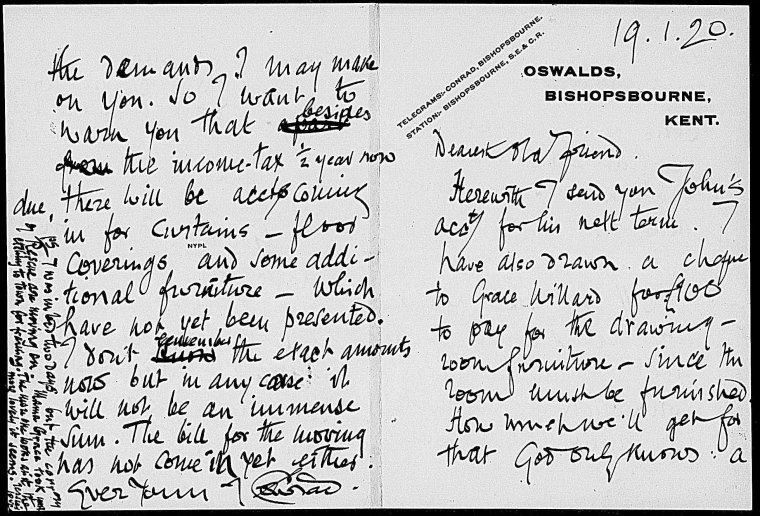 19.1.20.
TELEGRAMS:- CONRAD, BISHOPSBOURNE.
STATION:- BISHOPSBOURNE, S.E. & C.R.
OSWALDS,
BISHOPSBOURNE,
KENT.
Dearest old friend.
Herewith I send you John's
acct for his next term. I
have also drawn a cheque
to Grace Willard for £100
to pay for the drawing-
room furniture - since the
room must be furnished.
How much we'll get for
that God only knows. a
the demands I may make
on you. So I want to
warn you that besides
the income-tax ½ year now
due, there will be accts coming
in for Curtains - floor
NYPL
Coverings and some addi-
tional furniture - which
have not yet been presented.
I don't remember the exact amounts
now but in any case it
will not be an immense
sum. The bill for the moving
has not come in yet either.
Ever Yours J Conrad.
PS I was in bed two days but the copy
of Rescue are moving on. Mama Grace took